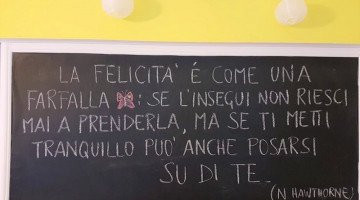 LA FELICITA' É COME UNA
FARFALLA : SE L'INSEGUI NON RIESCI
MAI A PRENDERLA, MA SE TI METTI
TRANQUILLO PUO' ANCHE POSARSI
SU DI TE.
(N HAWTHORNE)